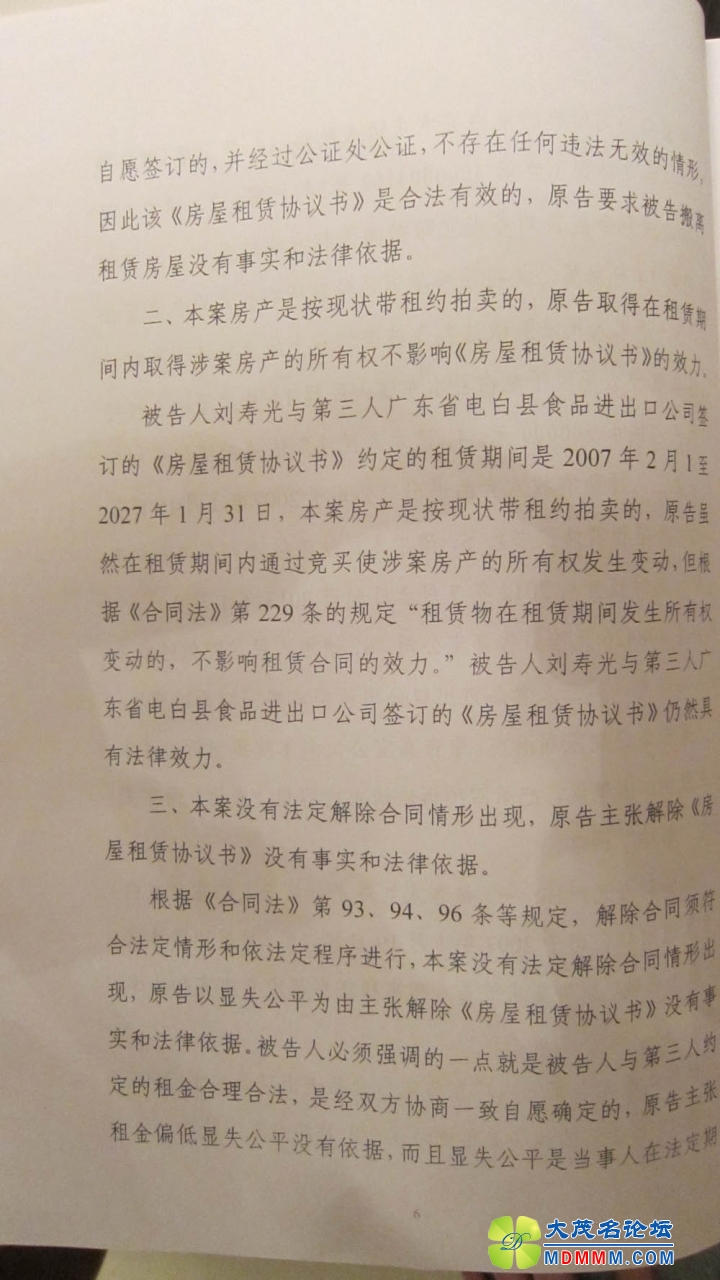 自愿签订的,并经过公证处公证,不存在任何违法无效的情形,
因此该《房屋租赁协议书》是合法有效的，原告要求被告搬离
租赁房屋没有事实和法律依据。
二、本案房产是按现状带租约拍卖的，原告取得在租赁期
间内取得涉案房产的所有权不影响《房屋租赁协议书》的效力。
被告人刘寿光与第三人广东省电白县食品进出口公司签
订的《房屋租赁协议书》约定的租赁期间是 2007 年 2 月 1 至
2027 年 1 月 31 日，本案房产是按现状带租约拍卖的，原告虽
然在租赁期间内通过竞买使涉案房产的所有权发生变动,但根
据《合同法》第 229 条的规定“租赁物在租赁期间发生所有权
变动的，不影响租赁合同的效力。”被告人刘寿光与第三人广
东省电白县食品进出口公司签订的《房屋租赁协议书》仍然具
有法律效力。
三、本案没有法定解除合同情形出现，原告主张解除《房
屋租赁协议书》没有事实和法律依据。
根据《合同法》第 93、94、96 条等规定，解除合同须符
合法定情形和依法定程序进行,本案没有法定解除合同情形出
现，原告以显失公平为由主张解除《房屋租赁协议书》没有事
实和法律依据。被告人必须强调的一点就是被告人与第三人约
定的租金合理合法，是经双方协商一致自愿确定的，原告主张
租金偏低显失公平没有依据，而且显失公平是当事人在法定期
6
大茂名论坛
MDMMM.COM